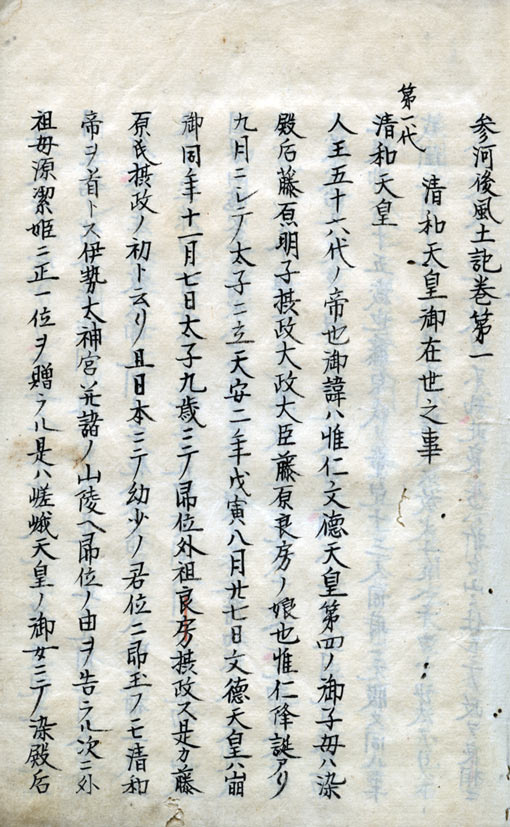 参河後風土記巻第一
清和天皇御在世之事
第一代
清和天皇
人王五十六代ノ帝也御諱ハ惟仁文徳天皇第四ノ御子母ハ染
殿后藤原明子摂政大政大臣藤原良房ノ娘也惟仁降誕アリ
九月ニシテ太子ニ立天安二年戊寅八月廿七日文徳天皇ハ崩
御同年十一月七日太子九歳ニテ即位外祖良房摂政ス是方藤
原氏摂政ノ初ト云リ且日本ニテ幼少ノ君位ニ即玉ノモ清和
帝ヲ首トス伊勢太神宮并諸ノ山陵ヘ即位ノ由ヲ告ラル次ニ外
祖母源潔姫ニ正一位ヲ贈ラル是ハ嵯峨天皇ノ御女ニテ染殿后